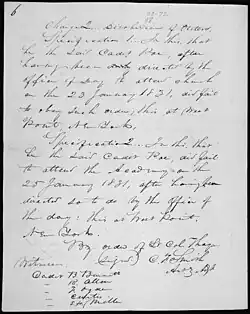 6
Charge 2. Disobedience of Orders.
Specification 1. In this, that
he the said Cadet Poe, after
having been directed by the
officer of day to attend church
on the 23 January 1831, did fail
to obey such order; this at West
Point, New York.
Specification 2. In this, that
he the said Cadet Poe, did fail
to attend the Academy on the
25 January 1831, after having been
directed so to do by the officer of
the day: this at West Point,
New York.
By order of Lt Col Thayer
Signed C. F. Smith
Witnesses
Cadet